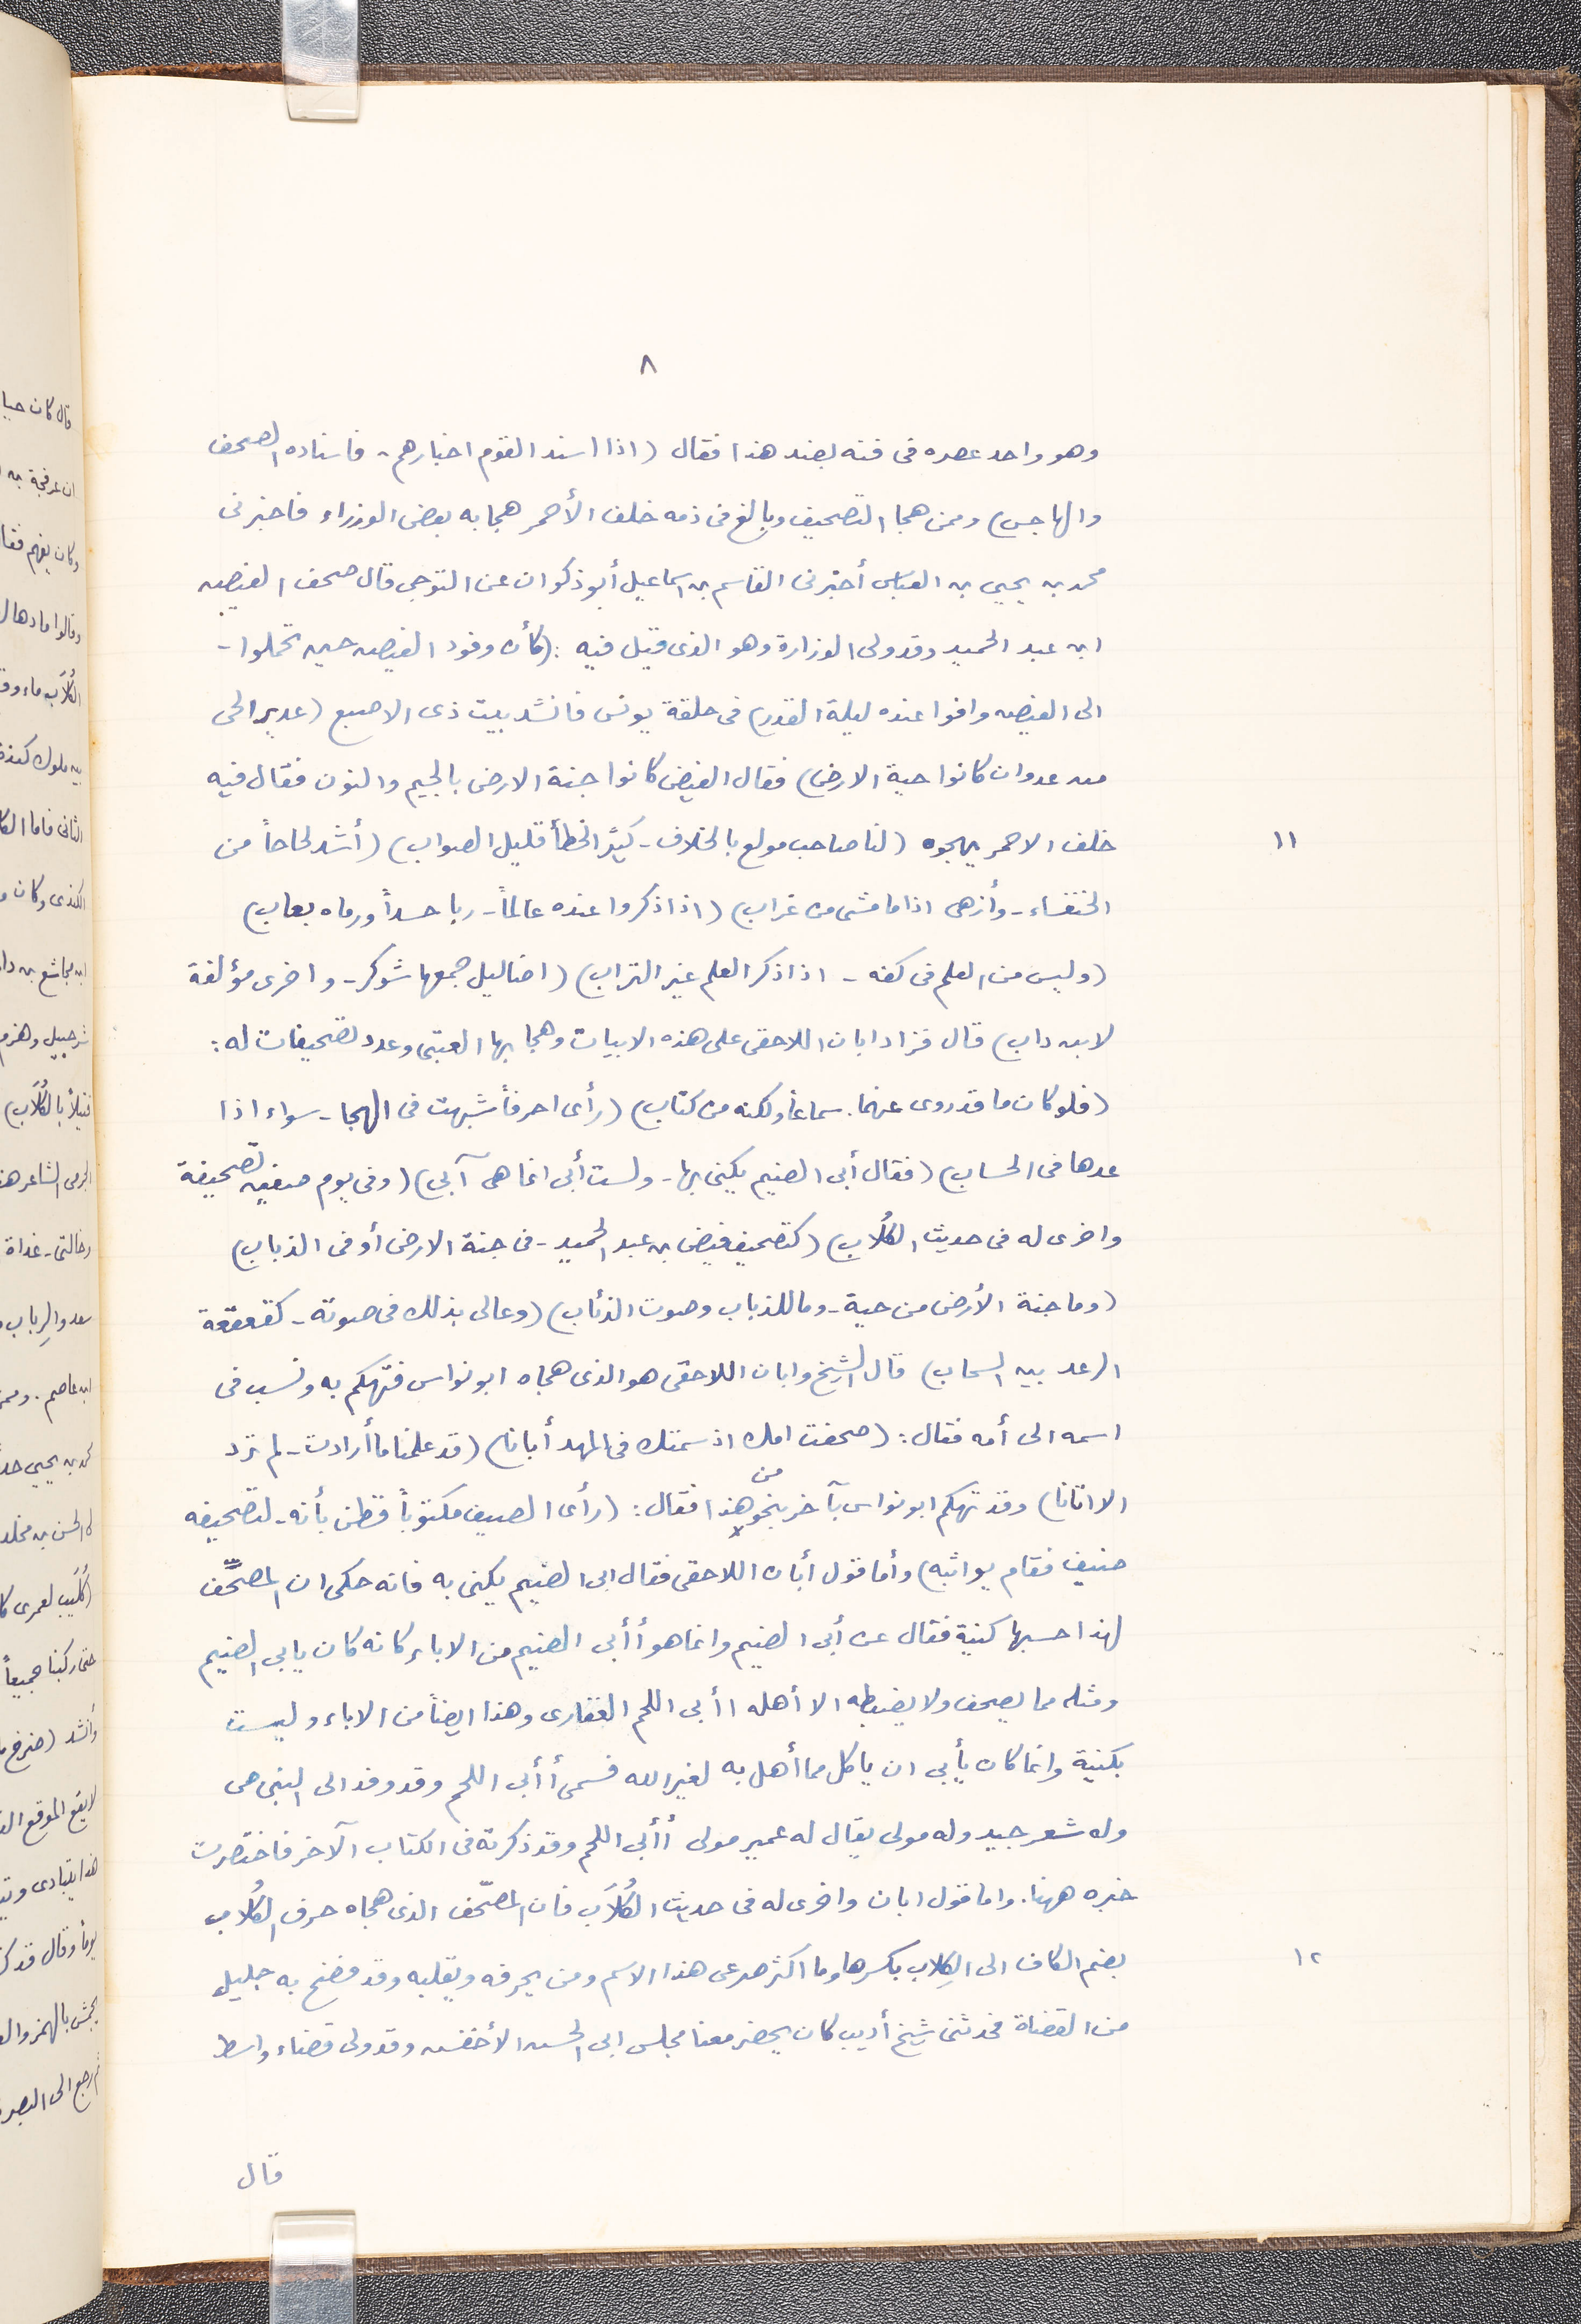 ٨
وهو واحد عصره فى فنه بضد هذا فقال (اذا اسند القوم اخبارهم - فاسناده الصحف
والهاجس) وممن هجا التصحيف وبالغ فى ذمه خلف الأحمر هجا به بعض الوزراء فاخبرنى
محمد بن يحيى بن العباس أخبرنى القاسم بن اسماعيل أبو ذكوان عن التوجى قال صحف الفيض
ابن عبد الحميد وقد ولى الوزارة وهو الذى قيل فيه : (كأن وفود الفيض حين تحملوا -
الى الفيض وافوا عنده ليلة القدر) فى حلقة يونس فانشد بيت ذى الاصبع (عدير الحى
من عدوان كانوا حية الارض) فقال الفيض كانوا جنة الارض بالجيم والنون فقال فيه
١١ خلف الاحمر يهجوه (لنا صاحب مولع بالخلاف - كثير الخطأ قليل الصواب) (أشد لجاجاً من
الخنفساء - وأزهى اذا ما مشى من غراب) (اذا ذكروا عنده عالماً - ربا حسداً ورماه بعاب)
(وليس من العلم فى كفه - اذا ذكر العلم غير التراب) (اضاليل جمعها شوكر - واخرى مؤلفة
لابن داب) قال فزاد ابان اللاحقى على هذه الابيات وهجا بها العتبى وعدد تصحيفات له :
(فلو كان ما قد روى عنهما . سماعاً ولكنه من كتاب) (رأى احرفاً شبهت فى الهجا - سواء اذا
عدها فى الحساب) (فقال أبى الضيم يكنى بها - ولست أبى انما هى آبى) (وفى يوم صفين تصحيفة
واخرى له فى حديث الكُلاب) (كتصحيف فيض بن عبد الحميد - فى جنة الارض أو فى الذباب)
(وما جنة الأرض من حية - وما للذباب وصوت الذئاب) (وعالى بذلك فى صوته - كقعقعة
الرعد بين السحاب) قال الشيخ وابان اللاحقى هو الذى هجاه ابو نواس فتهكم به ونسب فى
اسمه الى أمه فقال : (صحفت امك اذ سمتك فى المهد أبانا) (قد علمنا ما أرادت - لم ترد
الا اتانا) وقد تهكم ابو نواس بآخر بنحو من هذا فقال : (رأى الصيف مكتوباً فظن بأنه - لتصحيفه
ضيف فقام يواثبه) وأما قول أبان اللاحقى فقال ابى الضيم يكنى به فانه حكى ان المصحّف
لهذا حسبها كنية فقال عن أبى الضيم وانما هو أأبى الضيم من الاباء كانه كان يابى الضيم
ومثله مما يصحف ولا يضبطه الا أهله اأبى اللحم الغفارى وهذا ايضاً من الاباء وليست
بكنية وانما كان يأبى ان ياكل مما أهل به لغير الله فسمى أأبى اللحم وقد وفد الى النبى صى
وله شعر جيد وله مولى يقال له عمير مولى أأبى اللحم وقد ذكرته فى الكتاب الآخر فاختصرت
خبره ههنا . واما قول ابان واخرى له فى حديث الكُلاَب فان المصحّف الذى هجاه حرف الكُلاب
١٢ بضم الكاف الى الكِلاب بكسرها وما اكثر صرعى هذا الاسم ومن يحرفه ويقلبه وقد فضح به جليل
من القضاة فحدثنى شيخ أديب كان يحضر معنا مجلس ابى الحسن الأخفش وقد ولى قضاء واسط
قال